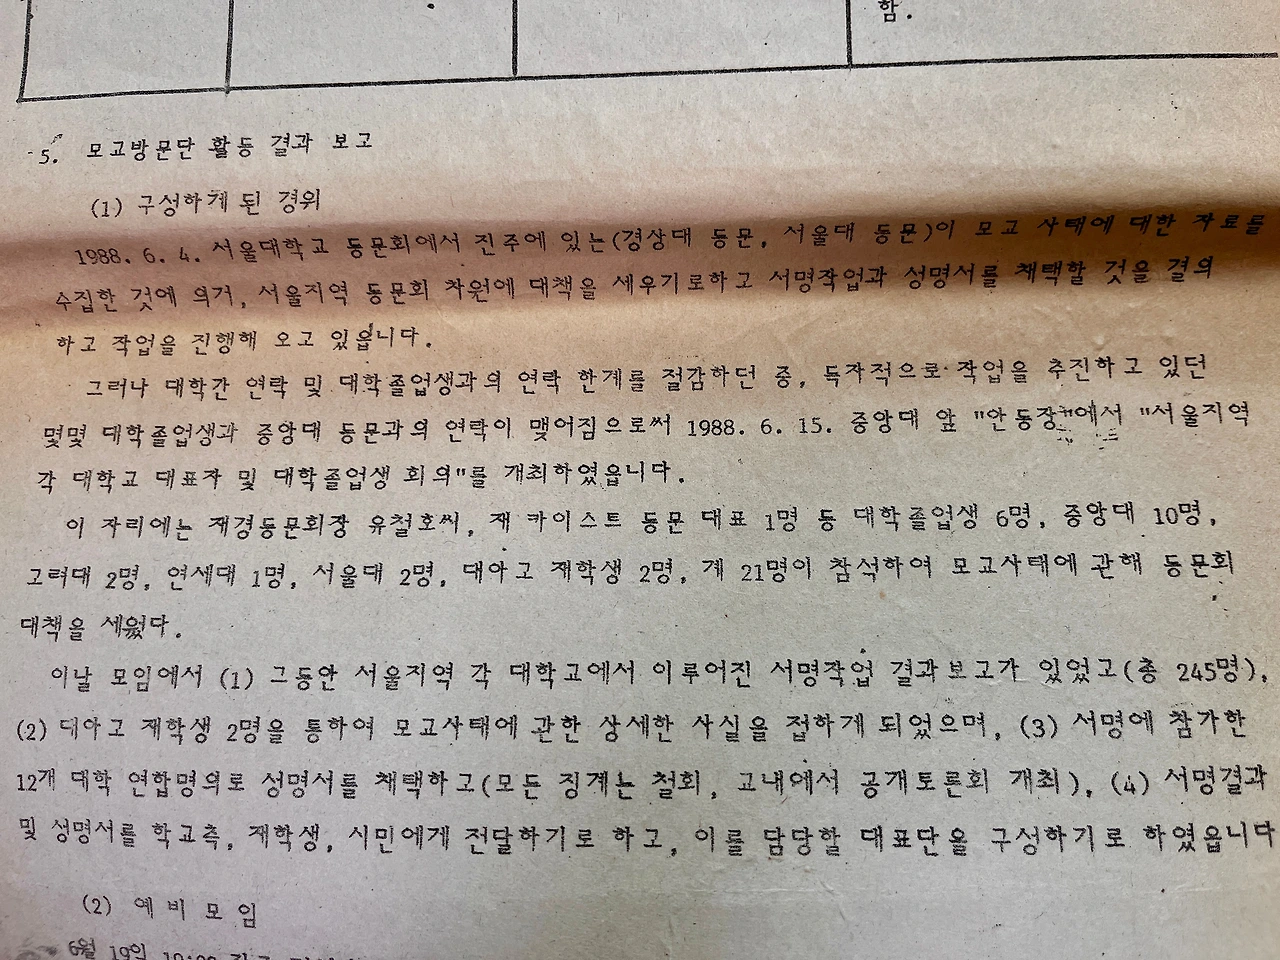 함.
5. 모교방문단 활동 결과 보고
(1) 구성하게 된 경위
1988. 6. 4. 서울대학교 동문회에서 진주에 있는(경상대 동문, 서울대 동문)이 모교 사태에 대한 자료를
수집한 것에 의거, 서울지역 동문회 차원에 대책을 세우기로하고 서명작업과 성명서를 채택할 것을 결의
하고 작업을 진행해 오고 있읍니다.
그러나 대학간 연락 및 대학졸업생과의 연락 한계를 절감하던 중, 독자적으로 작업을 추진하고 있던
몇몇 대학졸업생과 중앙대 동문과의 연락이 맺어짐으로써 1988. 6. 15. 중앙대 앞 "안동장"에서 "서울지역
각 대학교 대표자 및 대학졸업생 회의"를 개최하였읍니다.
이 자리에는 재경동문회장 유철호씨, 재 카이스트 동문 대표 1명 등 대학졸업생 6명, 중앙대 10명,
고려대 2명, 연세대 1명, 서울대 2명, 대아고 재학생 2명, 계 21명이 참석하여 모교사태에 관해 동문회
대책을 세웠다.
이날 모임에서 (1) 그동안 서울지역 각 대학교에서 이루어진 서명작업 결과보고가 있었고(총 245명),
(2) 대아고 재학생 2명을 통하여 모교사태에 관한 상세한 사실을 접하게 되었으며, (3) 서명에 참가한
12개 대학 연합명의로 성명서를 채택하고(모든 징계는 철회, 교내에서 공개토론회 개최), (4) 서명결과
및 성명서를 학교측, 재학생, 시민에게 전달하기로 하고, 이를 담당할 대표단을 구성하기로 하였읍니다
(2) 예비모임
6월 19일